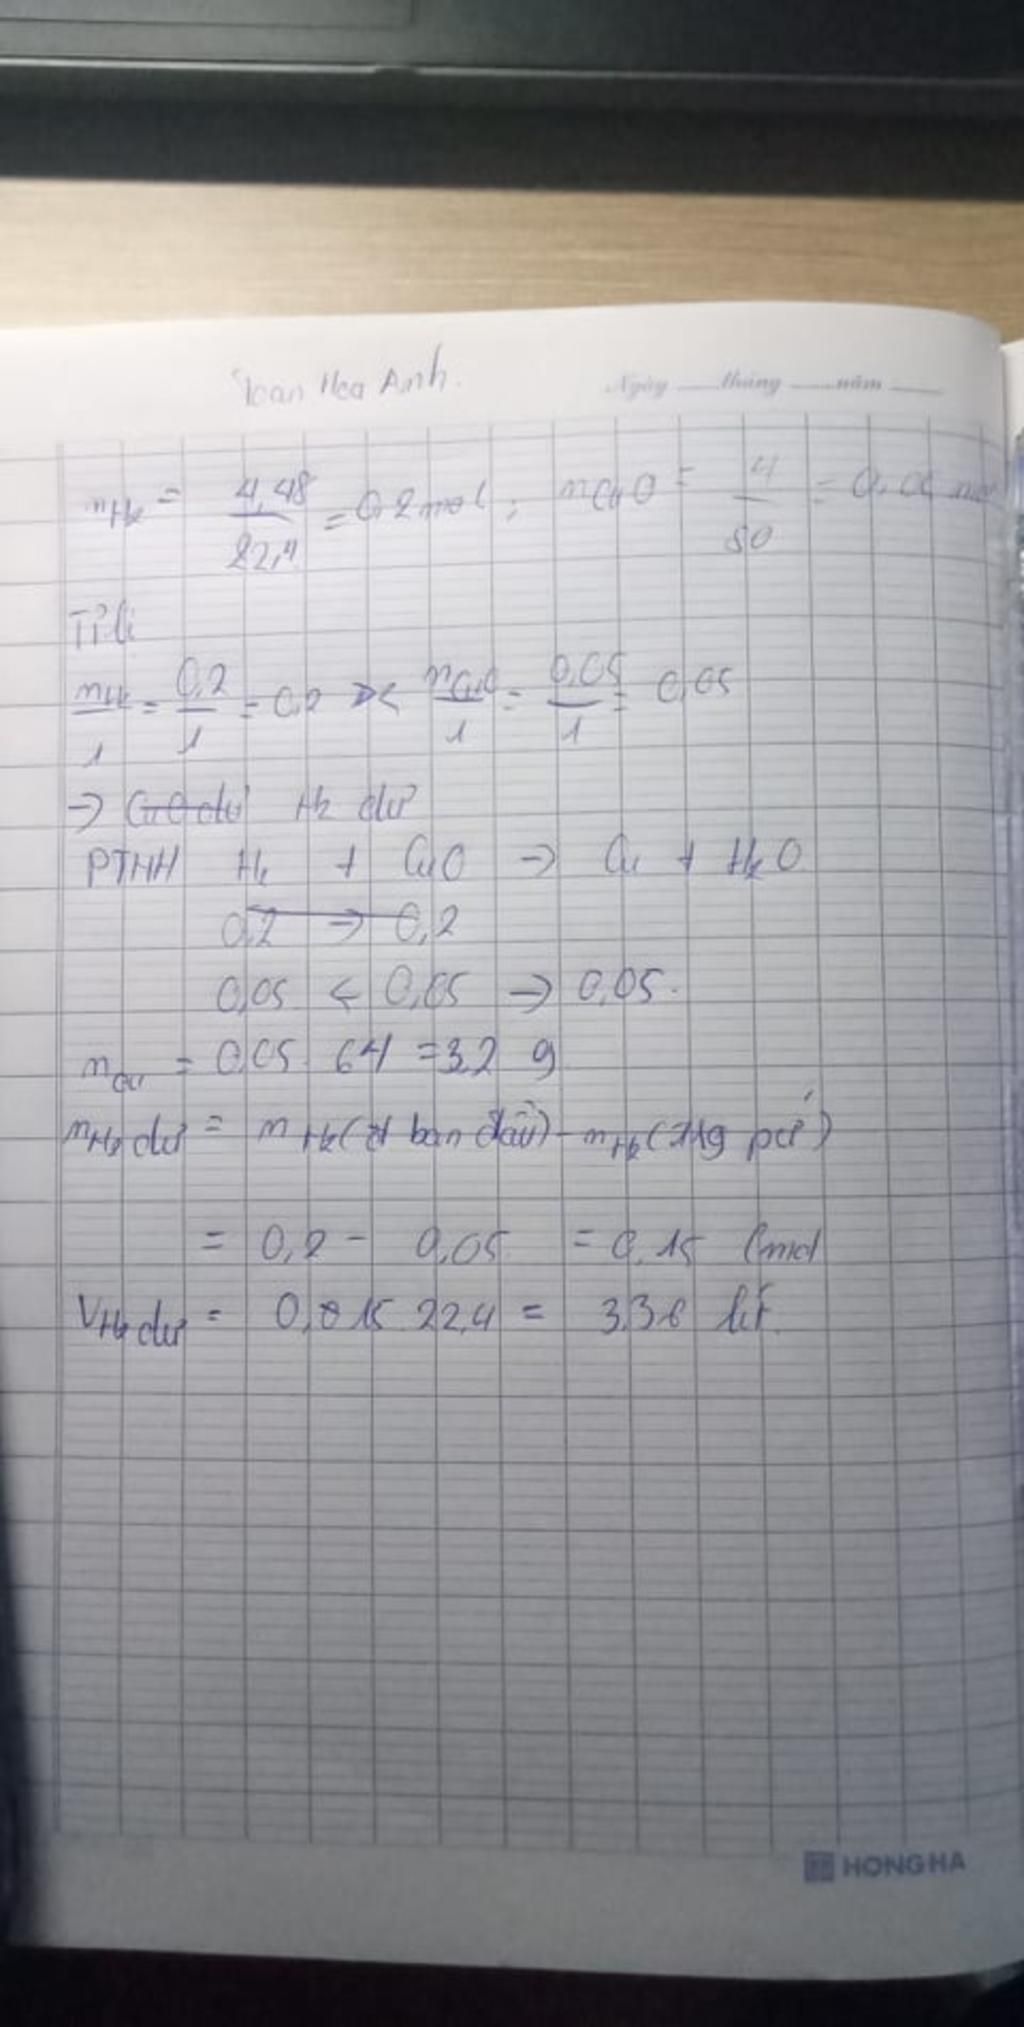 Toán Hoá Anh.
Ngày tháng năm
nH₂ = 4,48 / 22,4 = 0,2 mol ; nCuO = 4 / 80 = 0,05 mol
Tỉ lệ
nH₂ / 1 = 0,2 / 1 = 0,2 > < nCuO / 1 = 0,05 / 1 = 0,05
→ CuO dư H₂ dư
PTHH H₂ + CuO → Cu + H₂O
0,2 → 0,2
0,05 ← 0,05 → 0,05.
mCu = 0,05 . 64 = 3,2 g
nH₂ dư = nH₂ ( ban đầu) - nH₂ ( pư)
= 0,2 - 0,05 = 0,15 (mol
VH₂ dư = 0,15 . 22,4 = 3,36 lít.
HONG HA